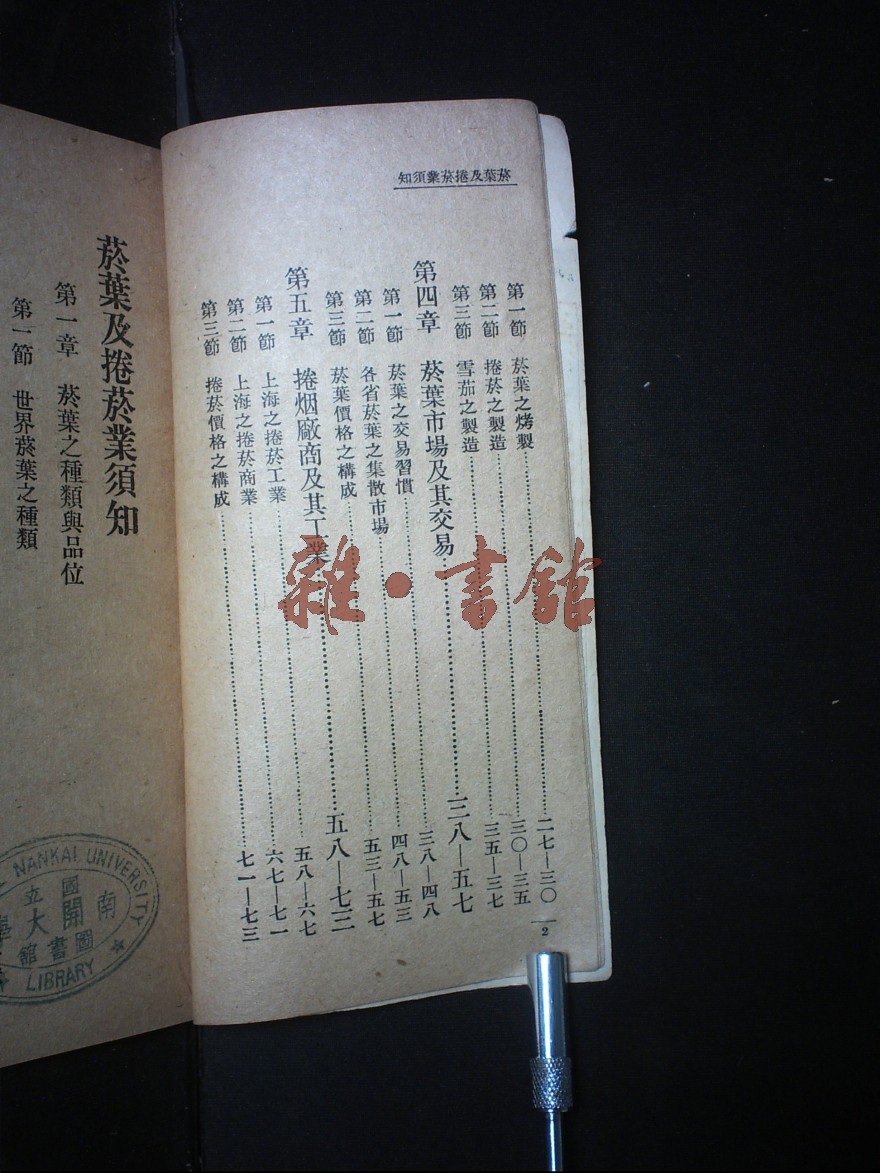 知須業菸捲及葉菸
第一節 菸葉之烤製 二七—三〇
第二節 捲菸之製造 三〇—三五
第三節 雪茄之製造 三五—三七
第四章 菸葉市場及其交易 三八—五七
第一節 菸葉之交易習慣 三八—四八
第二節 各省菸葉之集散市場 四八—五三
第三節 菸葉價格之構成 五三—五七
第五章 捲烟廠商及其工業 五八—七三
第一節 上海之捲菸工業 五八—六七
第二節 上海之捲菸商業 六七—七一
第三節 捲菸價格之構成 七一—七三
2
菸葉及捲菸業須知
第一章 菸葉之種類與品位
第一節 世界菸葉之種類
雜·書館
NANKAI UNIVERSITY
國立
南開大學
圖書館
LIBRARY